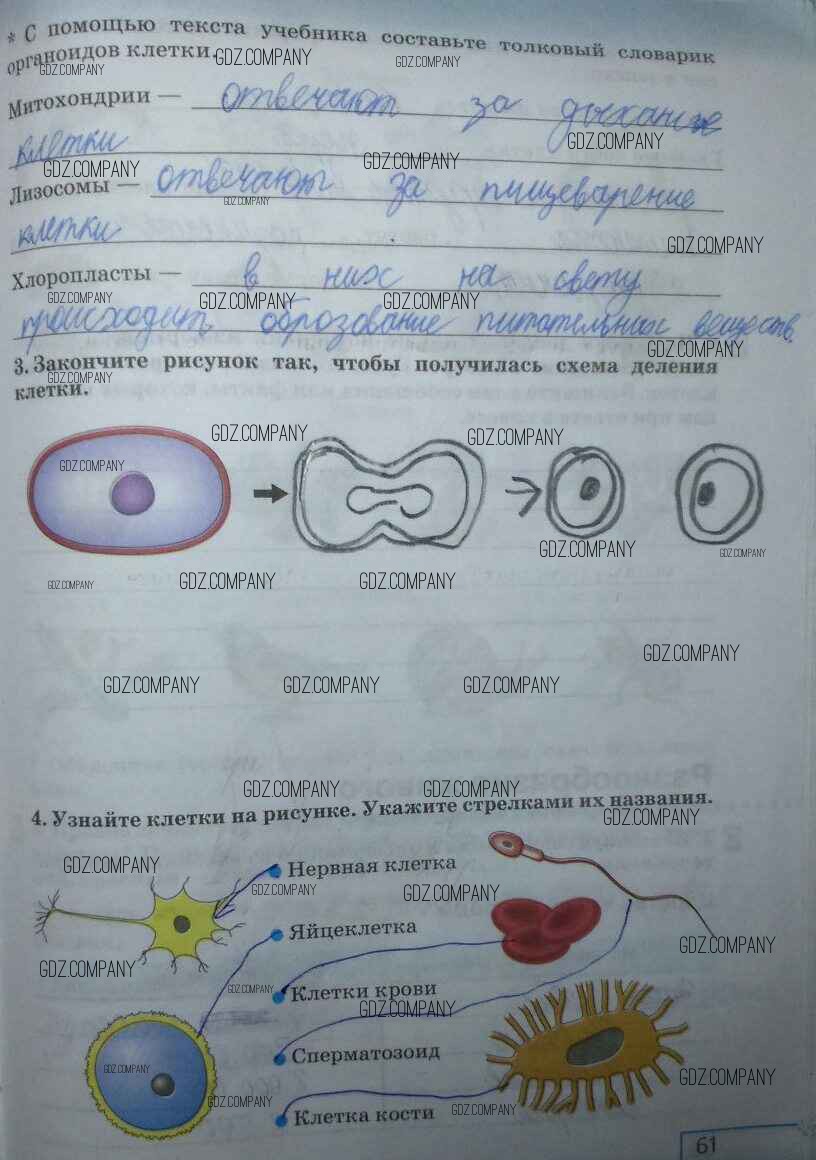 * С помощью текста учебника составьте толковый словарик
органоидов клетки.
Митохондрии — отвечают за дыхание
клетки
Лизосомы — отвечают за пищеварение
клетки
Хлоропласты — в них на свету
происходит образование питательных веществ.
3. Закончите рисунок так, чтобы получилась схема деления
клетки.
4. Узнайте клетки на рисунке. Укажите стрелками их названия.
Нервная клетка
Яйцеклетка
Клетки крови
Сперматозоид
Клетка кости
61
GDZ.COMPANY